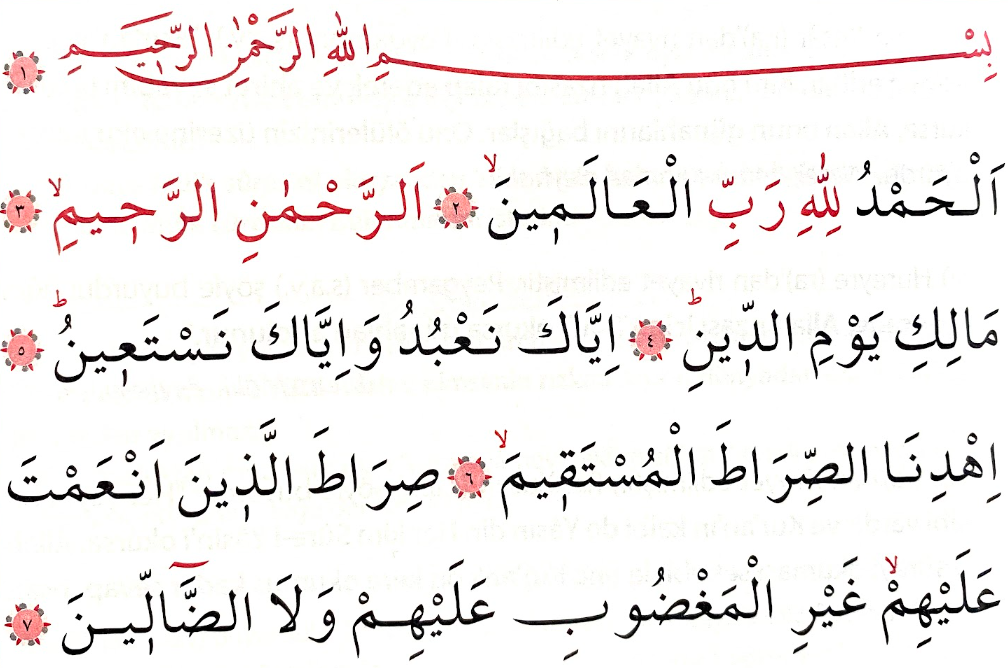 بِسْمِ اللهِ الرَّحْمٰنِ الرَّحِيمِ ١
اَلْحَمْدُ لِلّٰهِ رَبِّ الْعَالَمِينَۙ ٢ اَلرَّحْمٰنِ الرَّحِيمِۙ ٣
مَالِكِ يَوْمِ الدِّينِۜ ٤ اِيَّاكَ نَعْبُدُ وَاِيَّاكَ نَسْتَعِينُۜ ٥
اِهْدِنَا الصِّرَاطَ الْمُسْتَقِيمَۙ ٦ صِرَاطَ الَّذِينَ اَنْعَمْتَ
عَلَيْهِمْۙ غَيْرِ الْمَغْضُوبِ عَلَيْهِمْ وَلَا الضَّٓالِّينَ ٧